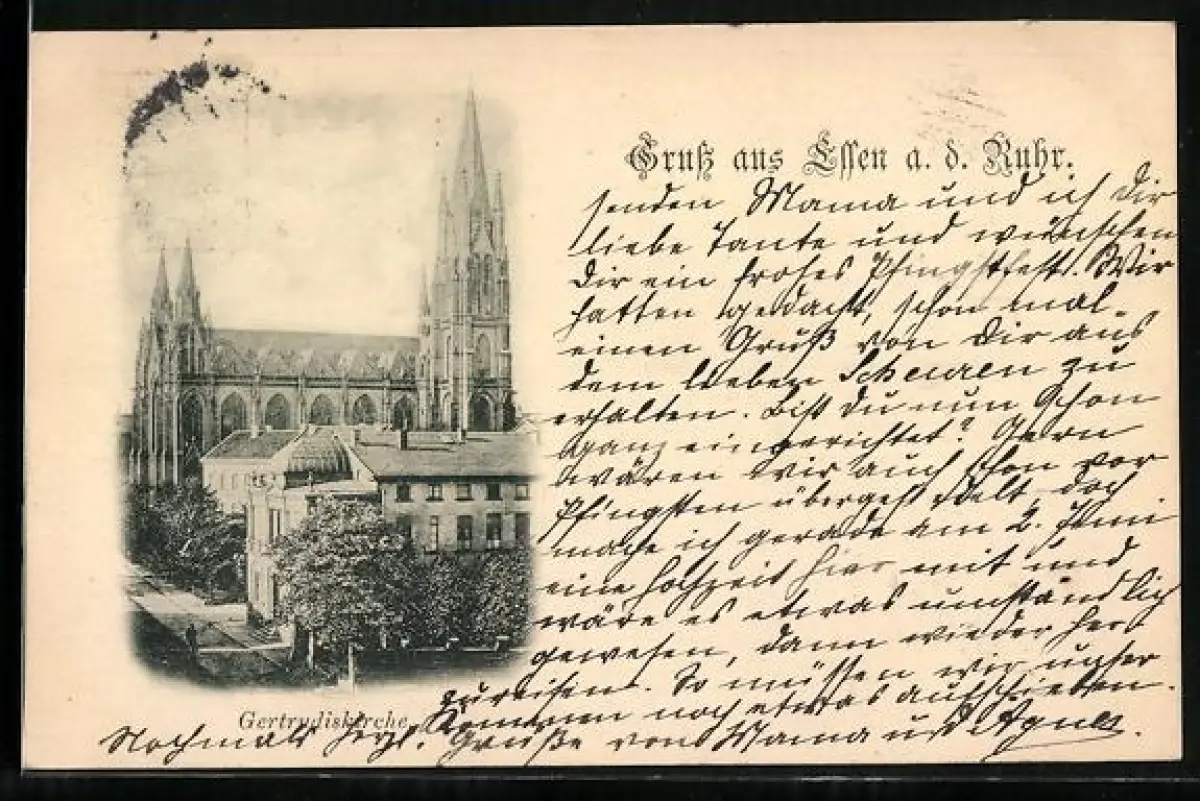 Gruß aus Essen a. d. Ruhr.
senden Mama und ich Dir
liebe Tante und wünschen
Dir ein frohes Pfingstfest. Wir
hatten gedacht, schon mal
einen Gruß von Dir aus
dem lieben Scheuren zu
erhalten. Bist Du nun schon
ganz eingerichtet? Gern
wären wir auch schon vor
Pfingsten übergesiedelt, doch
mache ich gerade am 2. Juni
eine Hochzeit hier mit und
wäre es etwas umständlich
gewesen, dann wieder her
zureisen. So müssen wir unser
Kommen noch etwas aufschieben.
Gertrudiskirche
Nochmals herzl. Grüße von Mama und Agnes.